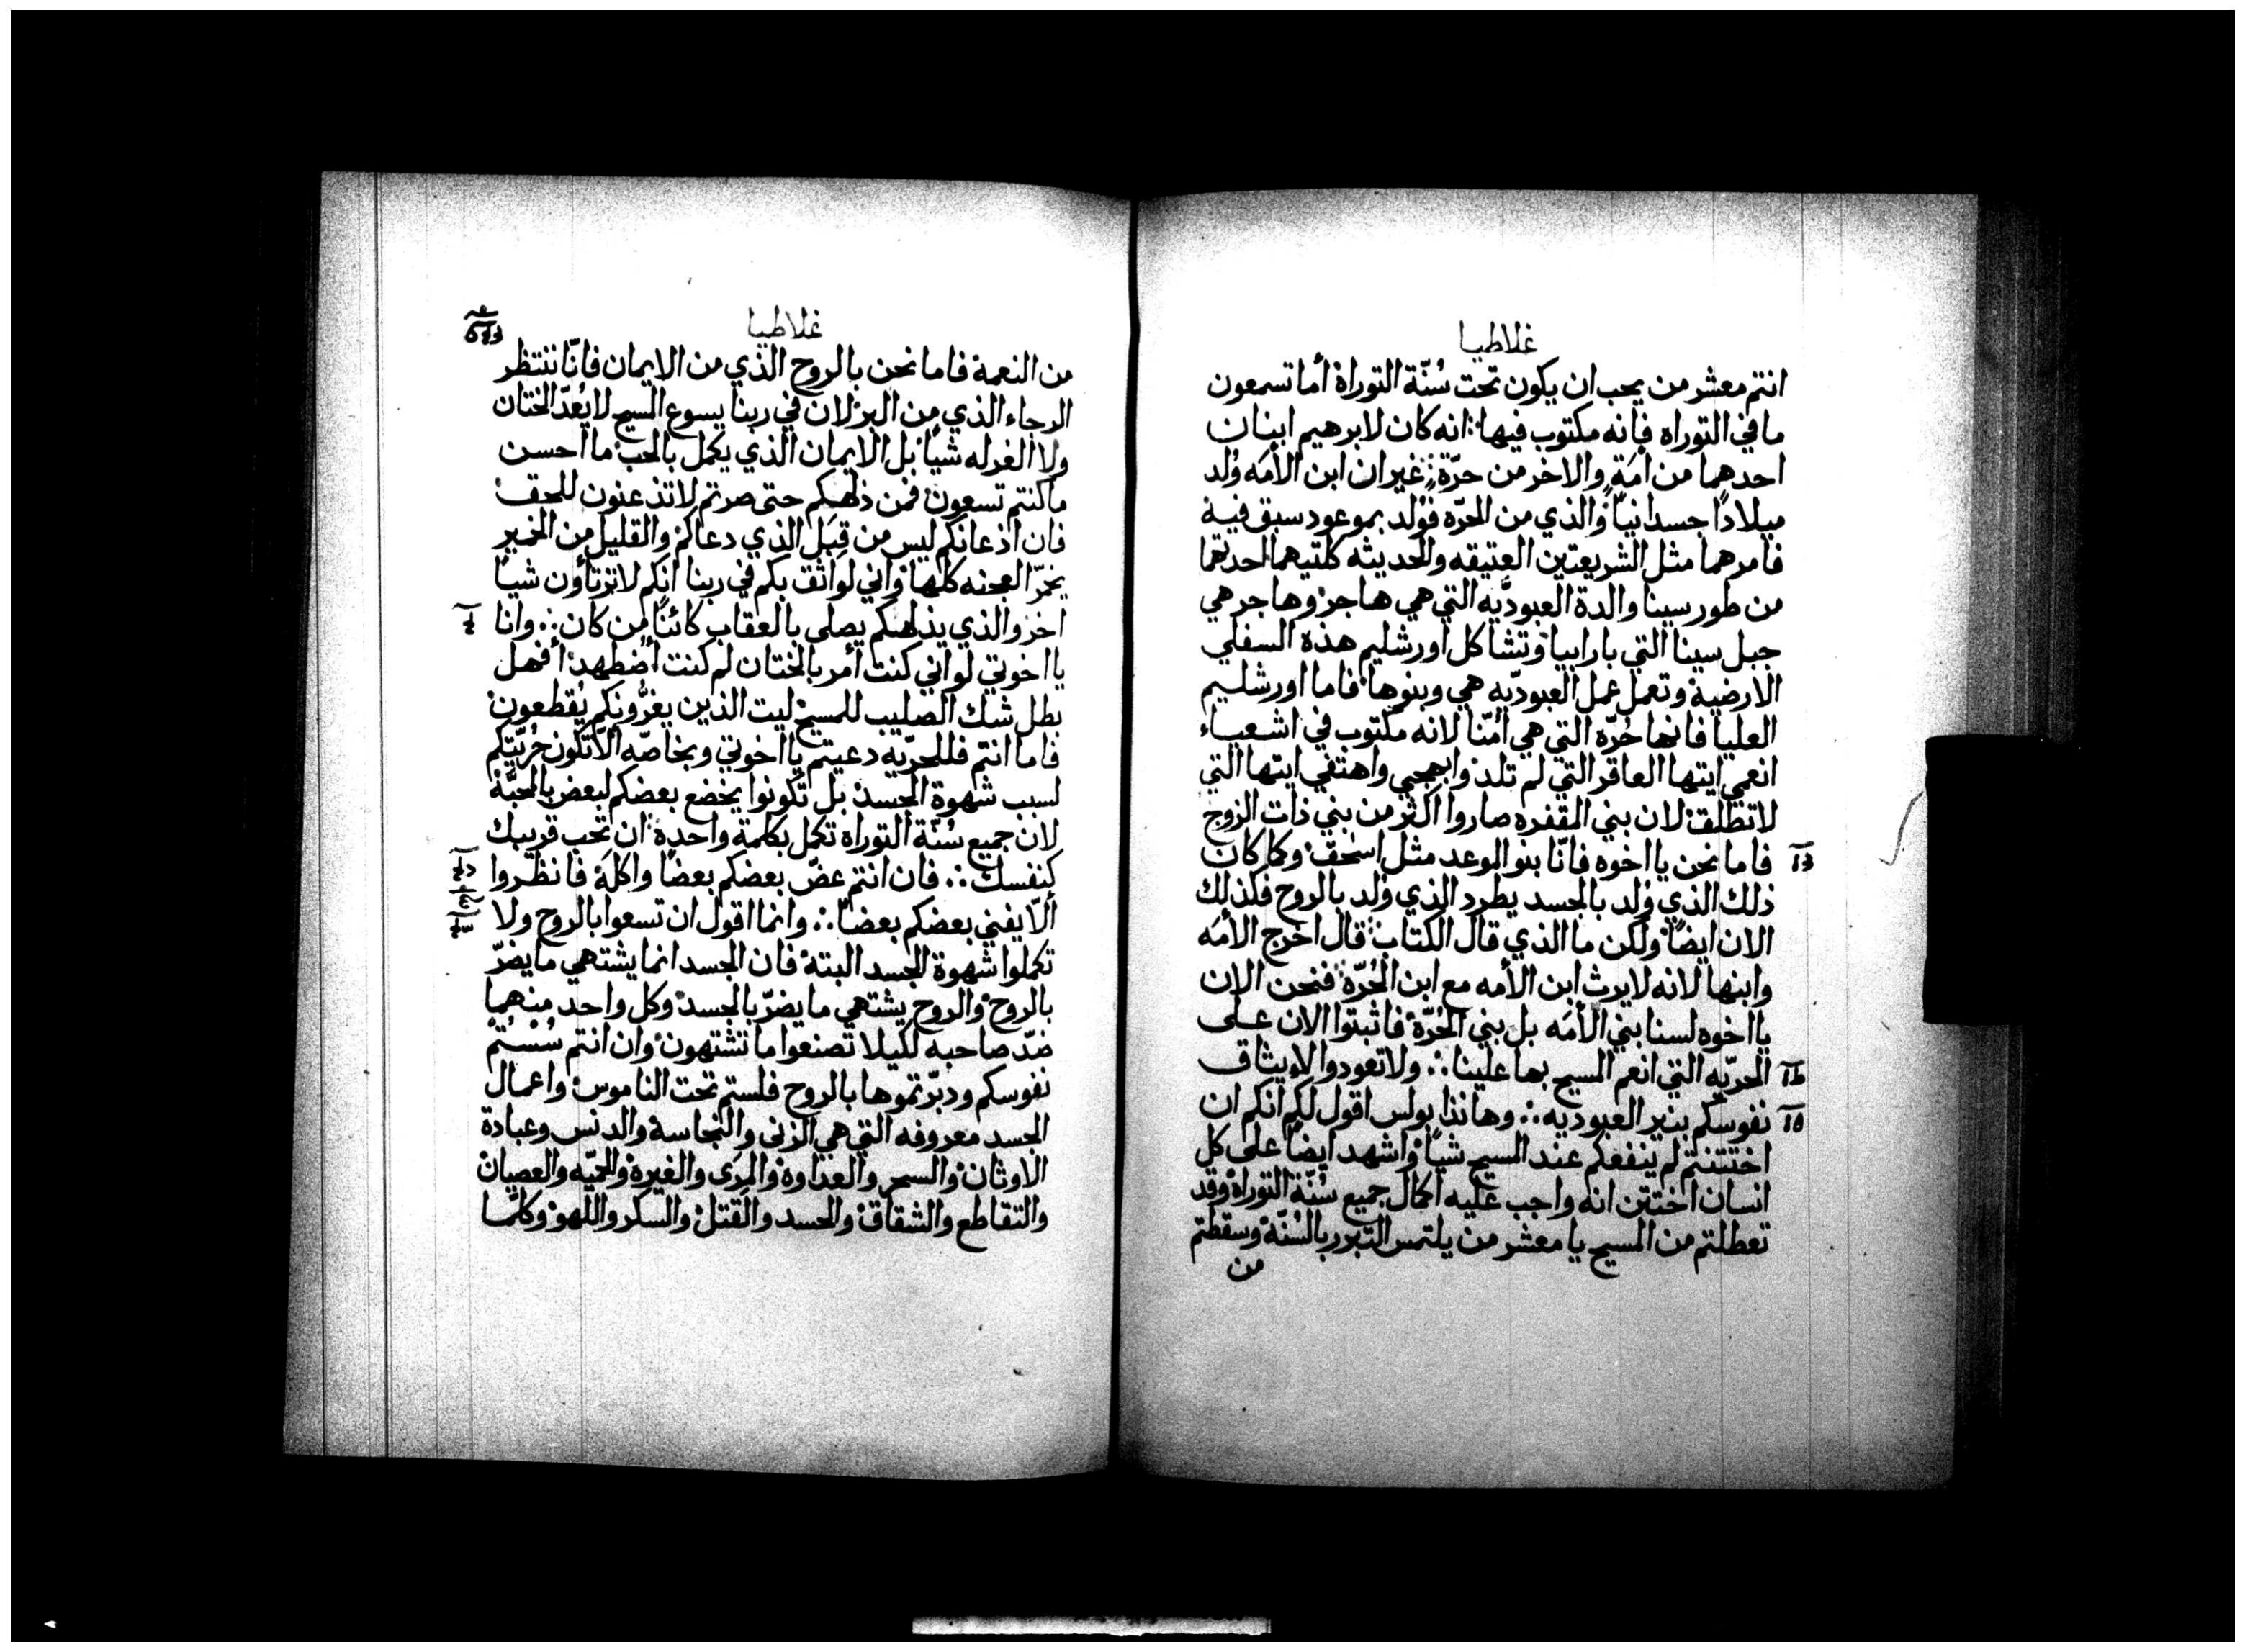 غلاطيا
انتم معشر من يحب ان يكون تحت سُنّة التوراة أما تسمعون
ما في التوراه فانه مكتوب فيها انه كان لابرهيم ابنان
احدهما من امَةٍ والاخر من حرّة غير ان ابن الأمَه وُلد
ميلادًا جسدانيّا والذي من الحرّه فوُلد بموعود سبق فيه
فامرهما مثل الشريعتين العتيقه والحديثه كلتيهما احدتهما
من طور سينا والدة العبوديّه التي هي هاجر وهاجر هي
جبل سينا التي بارابيا وتشاكل اورشليم هذه السفلي
الارضية وتعمل عمل العبوديّه هي وبنوها فاما اورشليم
العليا فانها حُرّه التي هي امُّنا لانه مكتوب في اشعياء
انعمي ايتها العاقر التي لم تلد وابهجي واهتفي ايتها التي
لا تطلق لان بني المقفره صاروا اكثر من بني ذات الزوج
فاما نحن يا اخوه فانّا بنو الوعد مثل اسحق وكما كان
ذلك الذي وُلد بالجسد يطرد الذي وُلد بالروح فكذلك
الان ايضًا ولكن ما الذي قال الكتاب قال اخرج الأمَه
وابنها لانه لا يرث ابن الأمه مع ابن الحُرّة فنحن الان
يا اخوه لسنا بني الأمَه بل بني الحُرّة فاثبتوا الان على
الحريّه التي انعم المسيح بها علينا ولا تعودوا لايثاق
نفوسكم بنير العبوديه وهانذا بولس اقول لكم انكم ان
اختتنتم لم ينفعكم عند المسيح شيًا واشهد ايضًا على كل
انسان اختتن انه واجب عليه اكمال جميع سُنّة التوراة وقد
تعطلتم من المسيح يا معشر من يلتمس التبرر بالسُنّة وسقطتم
من
غلاطيا
من النعمة فاما نحن بالروح الذي من الايمان فانّا ننتظر
الرجاء الذي من البر لان في ربنا يسوع المسيح لا يُعدّ الختان
ولا الغرله شيًا بل الايمان الذي يكمل بالحب ما احسن
ما كنتم تسعون فمن ذلهكم حتى صرتم لا تذعنون للحق
فان اذعانكم ليس من قِبَل الذي دعاكم والقليل من الخمير
يخمّر العجنه كلها واني لواثق بكم في ربنا انكم لا ترتأون شيًا
اخر والذي يذلهكم يصلى بالعقاب كائنًا من كان وانا
يا اخوتي لو اني كنت أمر بالختان لم كنت أضطهد أفهل
بطل شك الصليب للمسيح ليت الذين يغرُّونكم يُقطعون
فاما انتم فللحرّيّه دعيتم يا اخوتي وبخاصّه الّا تكون حُرّيّتكم
لسبب شهوة الجسد بل تكونوا يخضع بعضكم لبعض بالمحبّة
لان جميع سُنّة التوراه تكمل بكلمة واحدة ان تحب قريبك
كنفسك فان انتم عضّ بعضكم بعضًا واكلَه فانظروا
ألّا يفني بعضكم بعضًا وانما اقول ان تسعوا بالروح ولا
تكملوا شهوة الجسد البتة فان الجسد انما يشتهي ما يضرّ
بالروح والروح يشتهي ما يضرّ بالجسد وكل واحد منهما
ضدّ صاحبه لكيلا تصنعوا ما تشتهون وان انتم سُسْتُمْ
نفوسكم ودبّرتموها بالروح فلستم تحت الناموس واعمال
الجسد معروفه التي هي الزنى والنجاسة والدنس وعبادة
الاوثان والسحر والعداوة والمِرَى والغيرة والحميّه والعصيان
والتقاطع والشقاق والحسد والقتل والسكر واللهو وكلّما